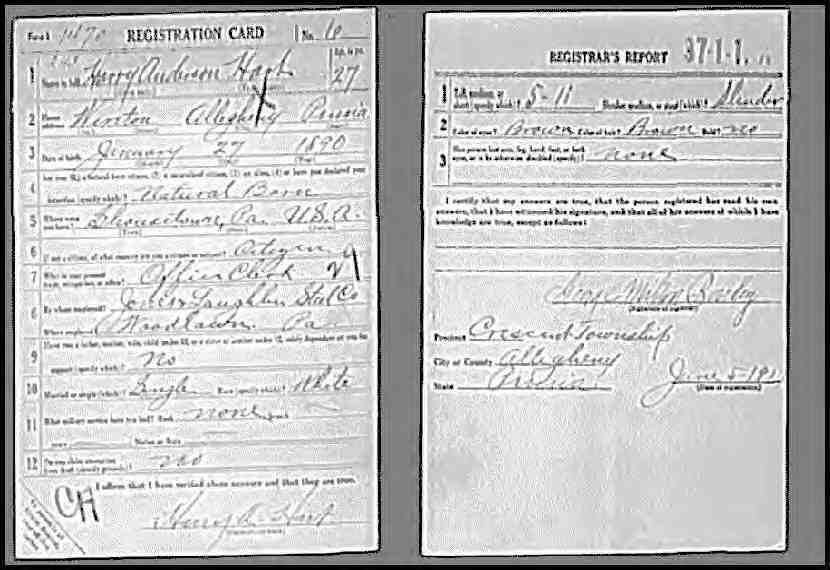 Form 1 1670 REGISTRATION CARD No. 6
1 Name in full Harry Anderson Hart Age, in yrs. 27
2 Home address Wireton Allegheny Penna
3 Date of birth January 27 1890
4 Are you (1) a natural born citizen, (2) a naturalized citizen, (3) an alien, (4) or have you declared your
intention (specify which)? Natural Born
5 Where were you born? Shousetown, Pa. U.S.A.
6 If not a citizen, of what country are you a citizen or subject? Citizen
7 What is your present trade, occupation, or office? Office Clerk 29
8 By whom employed? Jones Laughlin Steel Co
Where employed? Woodlawn Pa
9 Have you a father, mother, wife, child under 12, or a sister or brother under 12, solely dependent on you for
support (specify which)? No
10 Married or single (which)? Single Race (specify which)? White
11 What military service have you had? Rank none
years Nation or State
12 Do you claim exemption from draft (specify grounds)? no
I affirm that I have verified above answers and that they are true.
CH
Harry A. Hart
REGISTRAR'S REPORT 37-1-1
1 Tall, medium, or short (specify which)? 5-11 Slender, medium, or stout (which)? Slender
2 Color of eyes? Brown Color of hair? Brown Bald? no
3 Has person lost arm, leg, hand, foot, or both
eyes, or is he otherwise disabled (specify)? none
I certify that my answers are true, that the person registered has read his own
answers, that I have witnessed his signature, and that all of his answers of which I have
knowledge are true, except as follows:
(Signature of registrar)
Precinct Crescent Township
City or County Allegheny
State Penna June 5-191
(Date of registration)